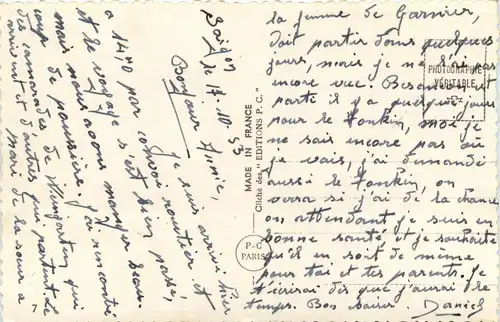 Saigon
le 17.10.53
Bonjour Annie,
Je suis arrivé hier
à 14,00 par convoi routier et
et le voyage s'est bien passé,
mais nous avons manger beau-
coup de poussière. J'ai rencontré
des camarades de qui
arrivent et d'autres qui partent. Le
mari de la sœur à
7
la femme de Garnier,
doit partir dans quelques
jours, mais je ne l'ai pas
encore vue. est
parti il y a quelques jours
pour le Tonkin, moi je
ne sais encore pas où
je vais, j'ai demandé
aussi le Tonkin, on
verra si j'ai de la chance
en attendant je suis en
bonne santé, et je souhaite
qu'il en soit de même
pour toi et tes parents. Je
t'écrirai dès que j'aurai de
temps. Bon baiser. Daniel
PHOTOGRAPHIE
VÉRITABLE
MADE IN FRANCE
Cliché des "EDITIONS P. C."
P-C
PARIS